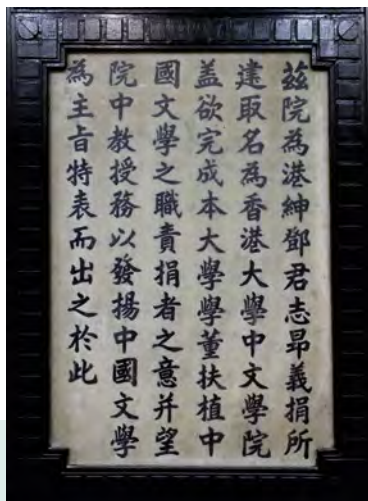 茲院為港紳鄧君志昂義捐所
建取名為香港大學中文學院
盖欲完成本大學學董扶植中
國文學之職責捐者之意并望
院中教授務以發揚中國文學
為主旨特表而出之於此